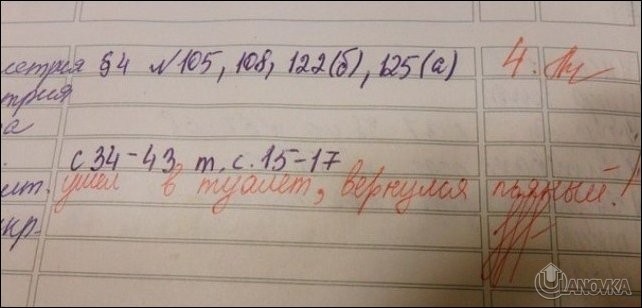 метрия §4 №105, 108, 122(б), 125(а) 4.
трия
а
с 34-43 т. с. 15-17
ушел в туалет, вернулся пьяный!
ULANOVKA